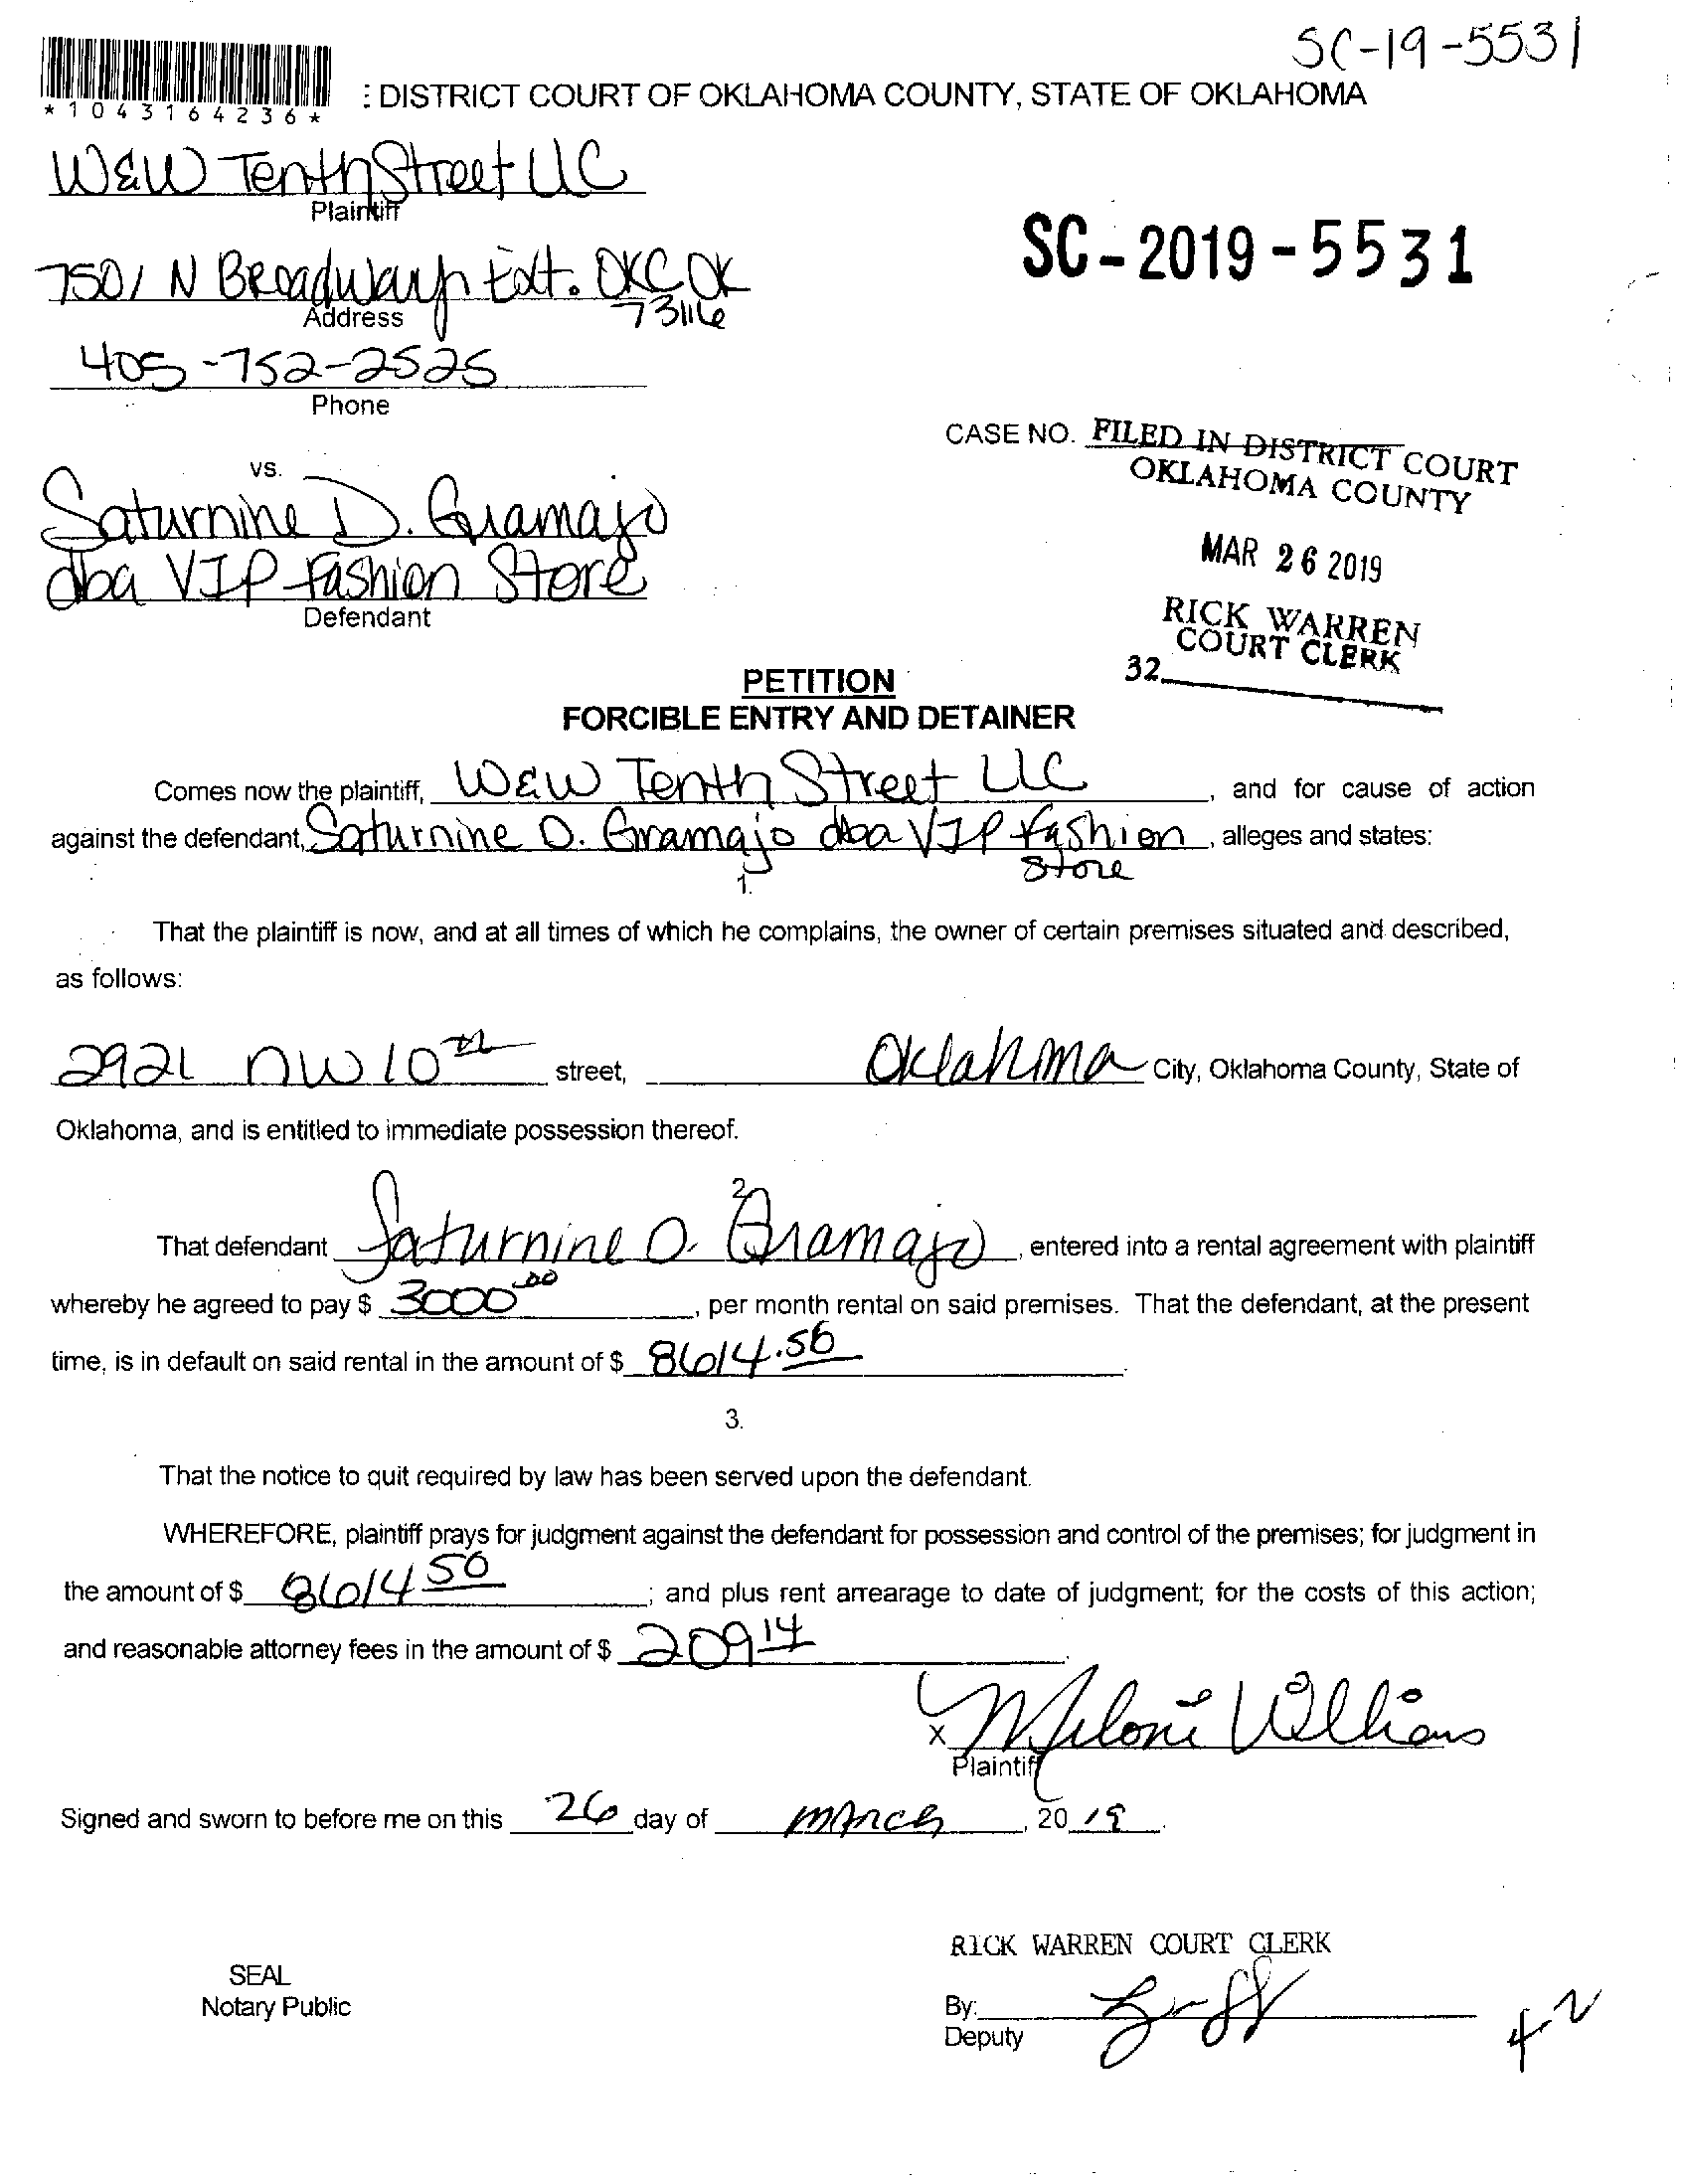 SC-19-5531
*1043164236*
: DISTRICT COURT OF OKLAHOMA COUNTY, STATE OF OKLAHOMA
W&W Tenth Street LLC
Plaintiff
SC-2019-5531
7501 N Broadway Ext. OKC OK
73116
Address
405-752-2525
Phone
CASE NO.
FILED IN DISTRICT COURT
OKLAHOMA COUNTY
MAR 26 2019
RICK WARREN
COURT CLERK
32
vs.
Saturnine D. Gramajo
dba VIP Fashion Store
Defendant
PETITION
FORCIBLE ENTRY AND DETAINER
Comes now the plaintiff, W&W Tenth Street LLC, and for cause of action
against the defendant, Saturnine O. Gramajo dba VIP Fashion, alleges and states:
Store
1.
That the plaintiff is now, and at all times of which he complains, the owner of certain premises situated and described,
as follows:
2921 NW 10th street, Oklahma City, Oklahoma County, State of
Oklahoma, and is entitled to immediate possession thereof.
2.
That defendant Saturnine O. Gramajo, entered into a rental agreement with plaintiff
whereby he agreed to pay $ 3000.00, per month rental on said premises. That the defendant, at the present
time, is in default on said rental in the amount of $ 8614.56.
3.
That the notice to quit required by law has been served upon the defendant.
WHEREFORE, plaintiff prays for judgment against the defendant for possession and control of the premises; for judgment in
the amount of $ 8614 50; and plus rent arrearage to date of judgment; for the costs of this action;
and reasonable attorney fees in the amount of $ 209 14.
x Meloni Williams
Plaintiff
Signed and sworn to before me on this 26 day of March, 20 19.
RICK WARREN COURT CLERK
SEAL
Notary Public
By:
Deputy